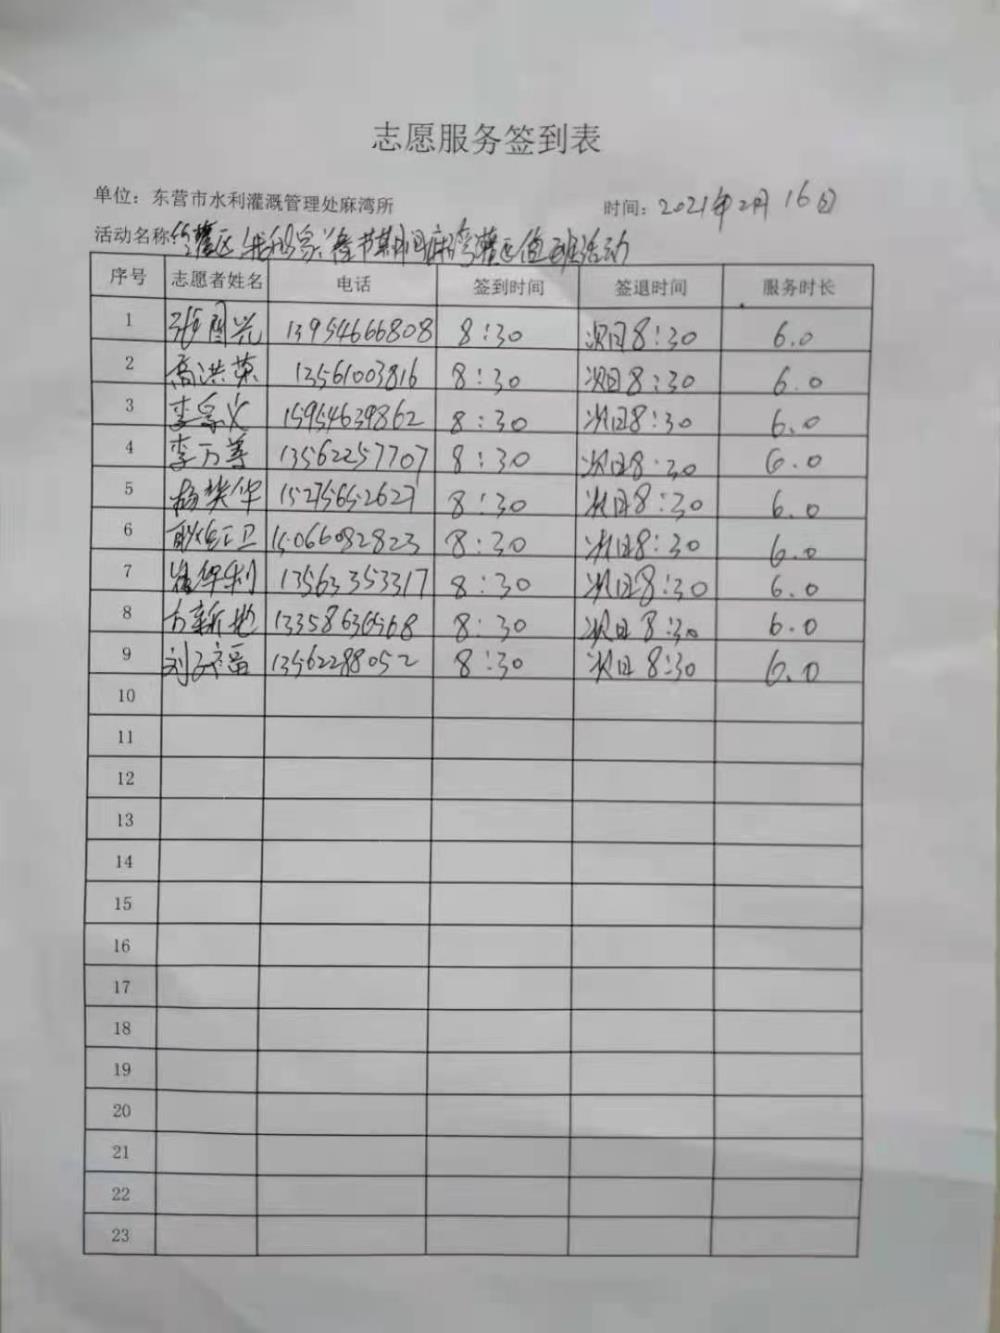 志愿服务签到表
单位：东营市水利灌溉管理处麻湾所 时间：2021年2月16日
活动名称 灌区 春节期间麻湾灌区值班活动
序号 志愿者姓名 电话 签到时间 签退时间 服务时长
1 张国兴 13954666808 8:30 次日8:30 6.0
2 高洪英 13561003816 8:30 次日8:30 6.0
3 李 15954639862 8:30 次日8:30 6.0
4 李万 13562257707 8:30 次日8:30 6.0
5 杨 华 15275652627 8:30 次日8:30 6.0
6 耿 卫 15066082823 8:30 次日8:30 6.0
7 崔华利 13563353317 8:30 次日8:30 6.0
8 新 8:30 次日8:30 6.0
9 刘 13562288052 8:30 次日8:30 6.0
10
11
12
13
14
15
16
17
18
19
20
21
22
23